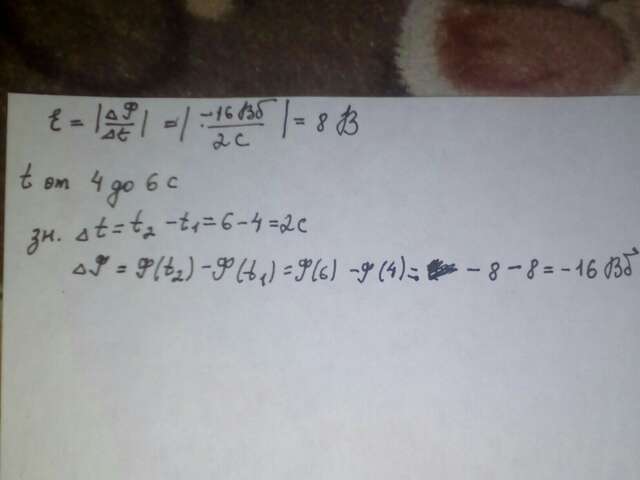 ε = |ΔФ/Δt| = |-16 Вб/2 с| = 8 В
t от 4 до 6 с
зн. Δt = t₂ - t₁ = 6 - 4 = 2с
ΔФ = Ф(t₂) - Ф(t₁) = Ф(6) - Ф(4) = - 8 - 8 = -16 Вб